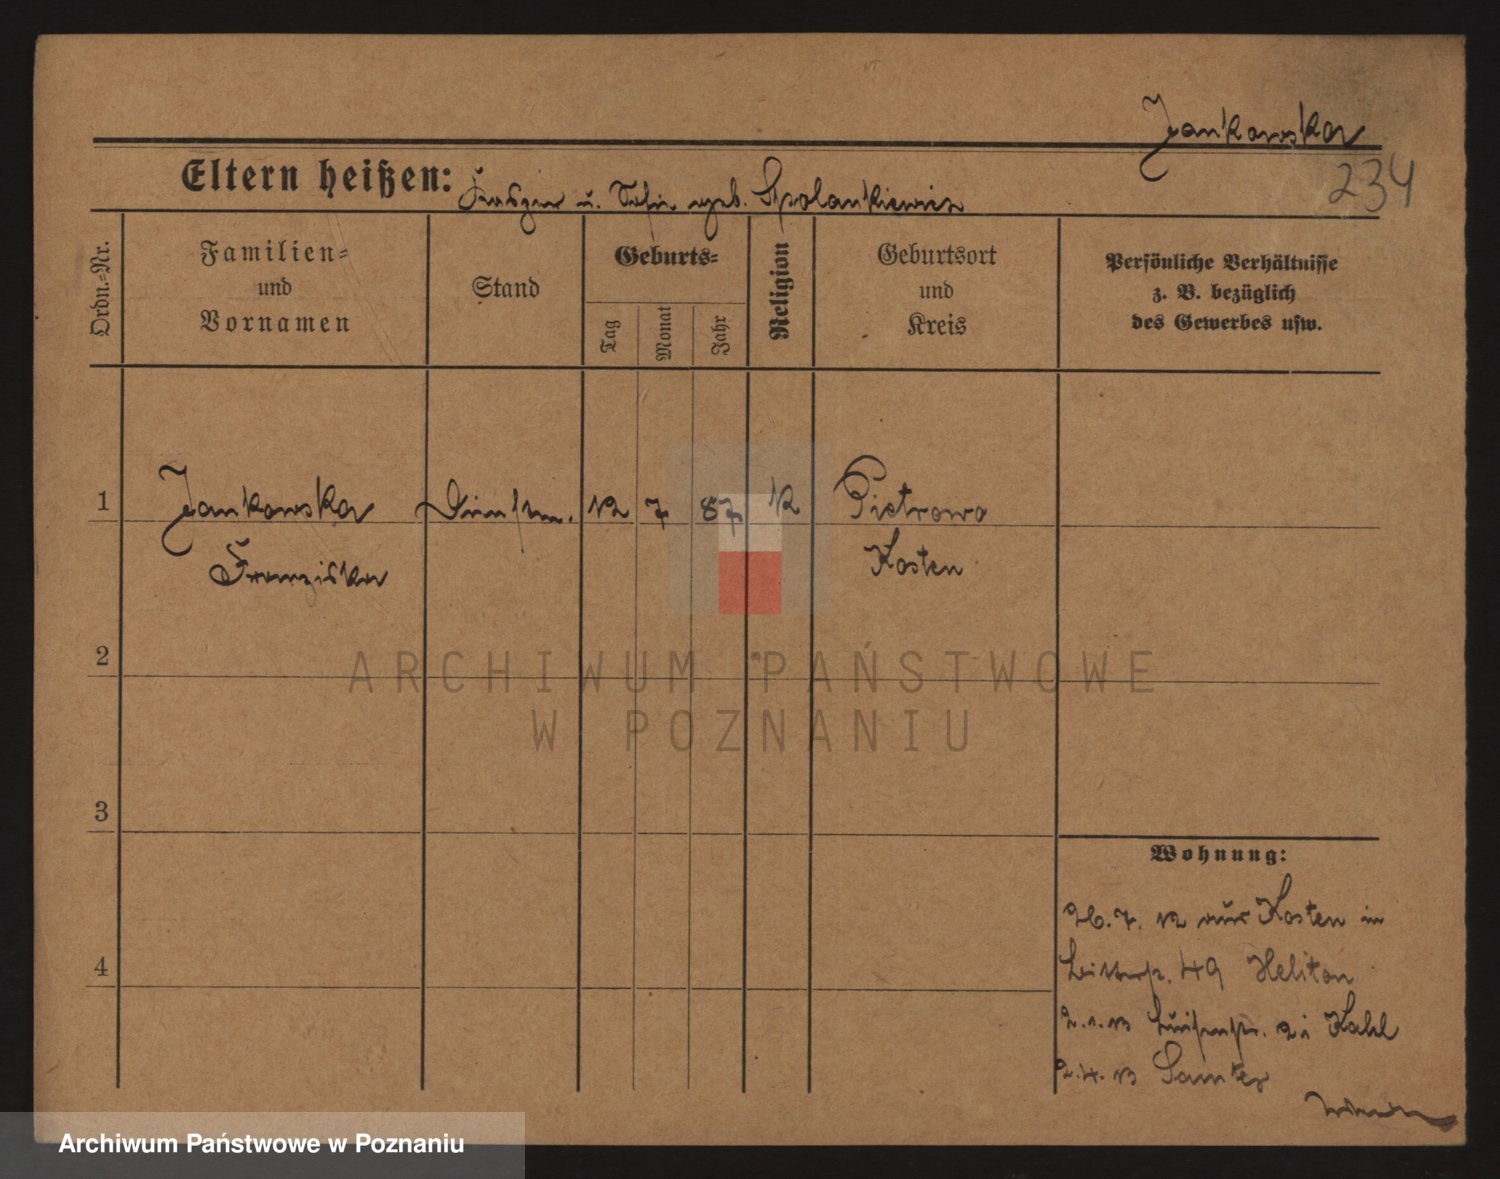 Jankowska
234
Eltern heißen: u. geb.
Ordn.-Nr.
Familien-
und
Vornamen
Stand
Geburts-
Tag
Monat
Jahr
Religion
Geburtsort
und
Kreis
Persönliche Verhältnisse
z. B. bezüglich
des Gewerbes usw.
1 Jankowska Dienstm. 12 7 87 K Pietrowo
Franziska Kosten
ARCHIWUM PAŃSTWOWE
W POZNANIU
2
3
4
Wohnung:
26. 7. 12 aus Kosten in
49 Heliton
2. 1. 13 Luisenstr. 21 Kahl
2. 4. 13 Samter
Archiwum Państwowe w Poznaniu